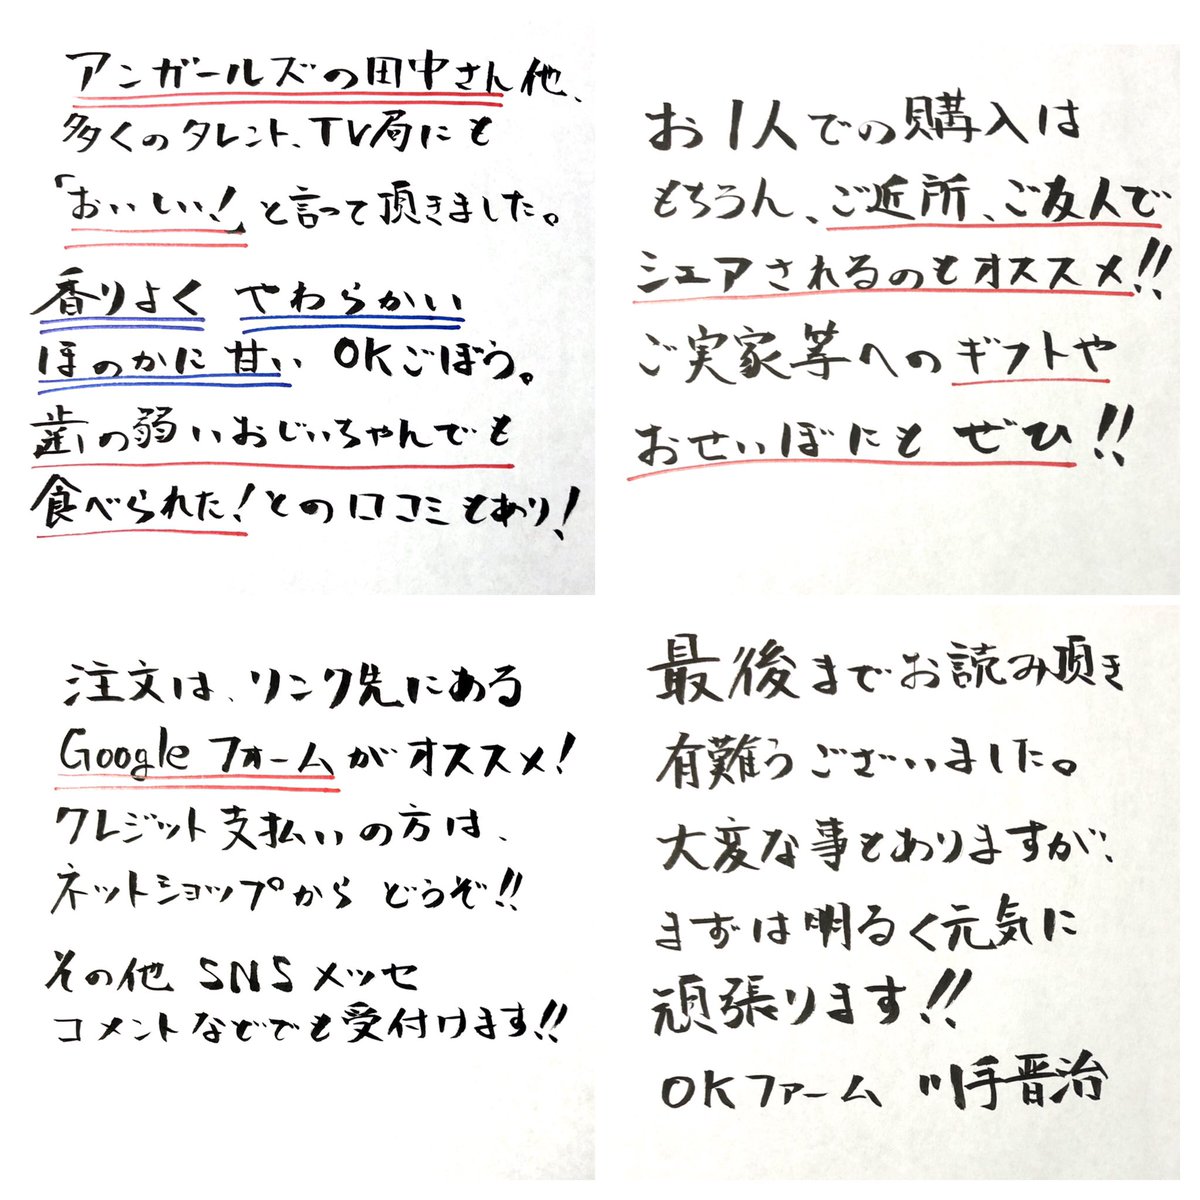 アンガールズの田中さん他、
多くのタレント、TV局にも
「おいしい！」と言って頂きました。
香りよく やわらかい
ほのかに甘い OKごぼう。
歯の弱いおじいちゃんでも
食べられた！との口コミもあり！
お1人での購入は
もちろん、ご近所、ご友人で
シェアされるのもオススメ!!
ご実家等へのギフトや
おせいぼにも ぜひ!!
注文は、リンク先にある
Google フォームがオススメ！
クレジット支払いの方は、
ネットショップから どうぞ!!
その他 SNSメッセ
コメントなどでも受付けます!!
最後までお読み頂き
有難うございました。
大変な事もありますが、
まずは明るく元気に
頑張ります!!
OKファーム 川手晋治